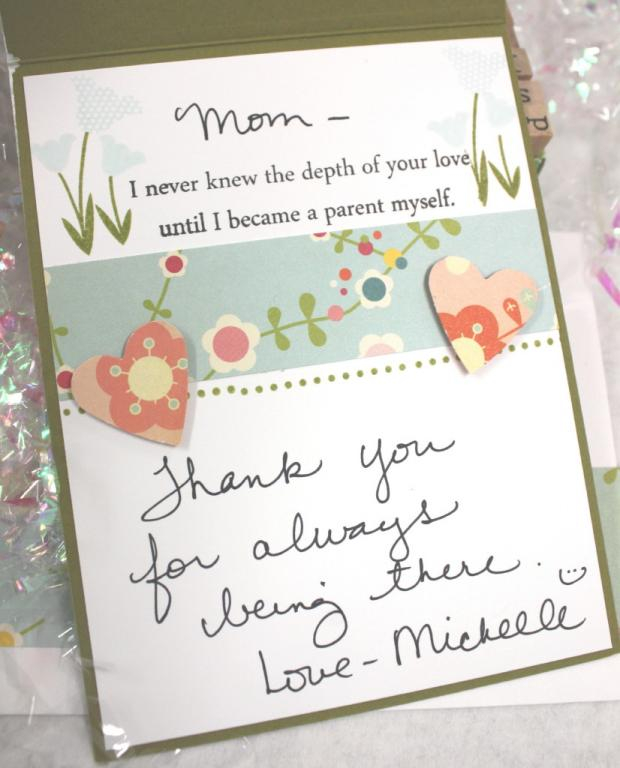 Mom -
I never knew the depth of your love
until I became a parent myself.
Thank you
for always
being there.
Love - Michelle
s
d